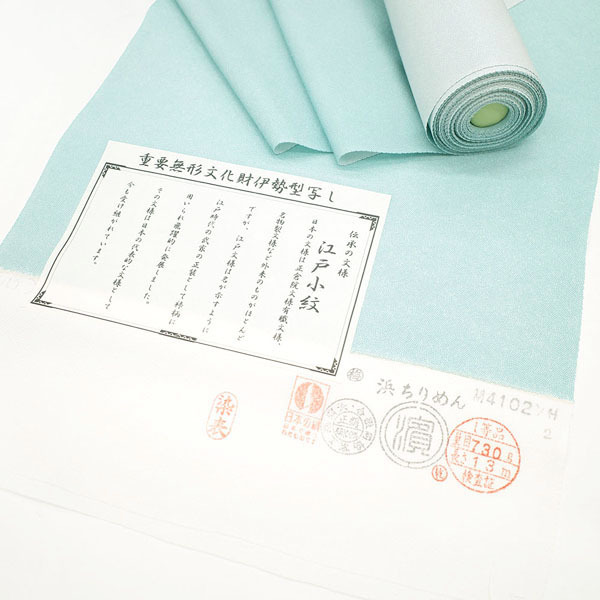 重要無形文化財伊勢型写し
伝承の文様
江戸小紋
日本の文様は正倉院文様有職文様、
名物裂文様など外来のものがほとんど
ですが、江戸文様は名が示すように
江戸時代の武家の正装として裃柄に
用いられ飛躍的に発展しました。
その文様は日本の代表的な文様として
今も受け継がれています。
浜ちりめん
M4102
2
染夫
日本の絹
濱
1等品
730g
長さ13m
検査証